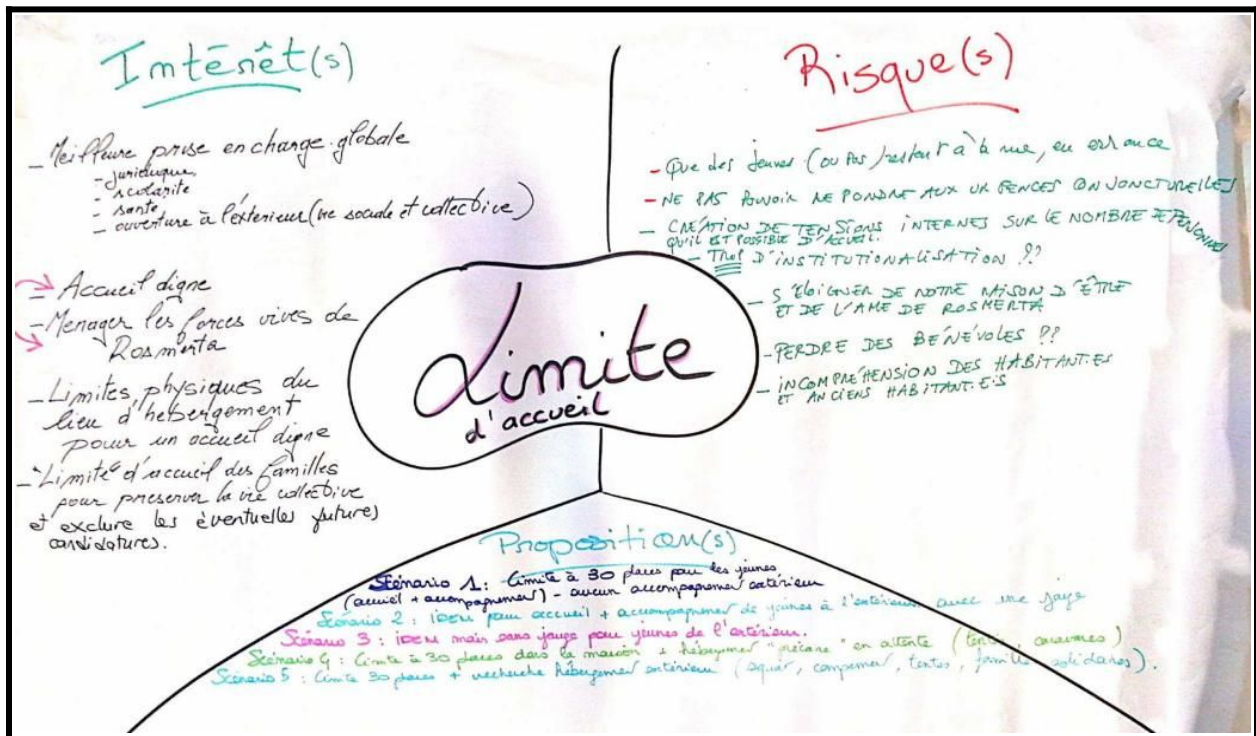 Intérêt(s)
_ Meilleure prise en charge globale
- juridique
- scolarité
- santé
- ouverture à l'extérieur (vie sociale et collective)
_ Accueil digne
- Menager les forces vives de
Rosmerta
_ Limites physiques du
lieu d'hébergement
pour un accueil digne
_ "Limite" d'accueil des familles
pour préserver la vie collective
et exclure les éventuelles futures
candidatures.
Risque(s)
- Que des jeunes (ou pas) restent à la rue, en errance
- NE PAS POUVOIR REPONDRE AUX URGENCES CONJONCTURELLES
- CRÉATION DE TENSIONS INTERNES SUR LE NOMBRE DE PERSONNES
QU'IL EST POSSIBLE D'ACCUEIL.
- TROP D'INSTITUTIONALISATION ??
- S'ÉLOIGNER DE NOTRE RAISON D'ÊTRE
ET DE L'AME DE ROSMERTA
- PERDRE DES BÉNÉVOLES ??
- INCOMPRÉHENSION DES HABITANT.ES
ET ANCIENS HABITANT.E.S
Limite
d'accueil
Proposition(s)
Scénario 1 : limite à 30 places pour les jeunes
(accueil + accompagnemen) - aucun accompagnemen extérieur
Scénario 2 : IDEM pour accueil + accompagnemen de jeunes à l'extérieur avec une jauge
Scénario 3 : IDEM mais sans jauge pour jeunes de l'extérieur.
Scénario 4 : limite à 30 places dans la maison + hébergemen "précaire" en attente (tente, caravanes)
Scénario 5 : limite 30 places + recherche hébergemen extérieur (squat, campemen, tentes, famille solidaires).